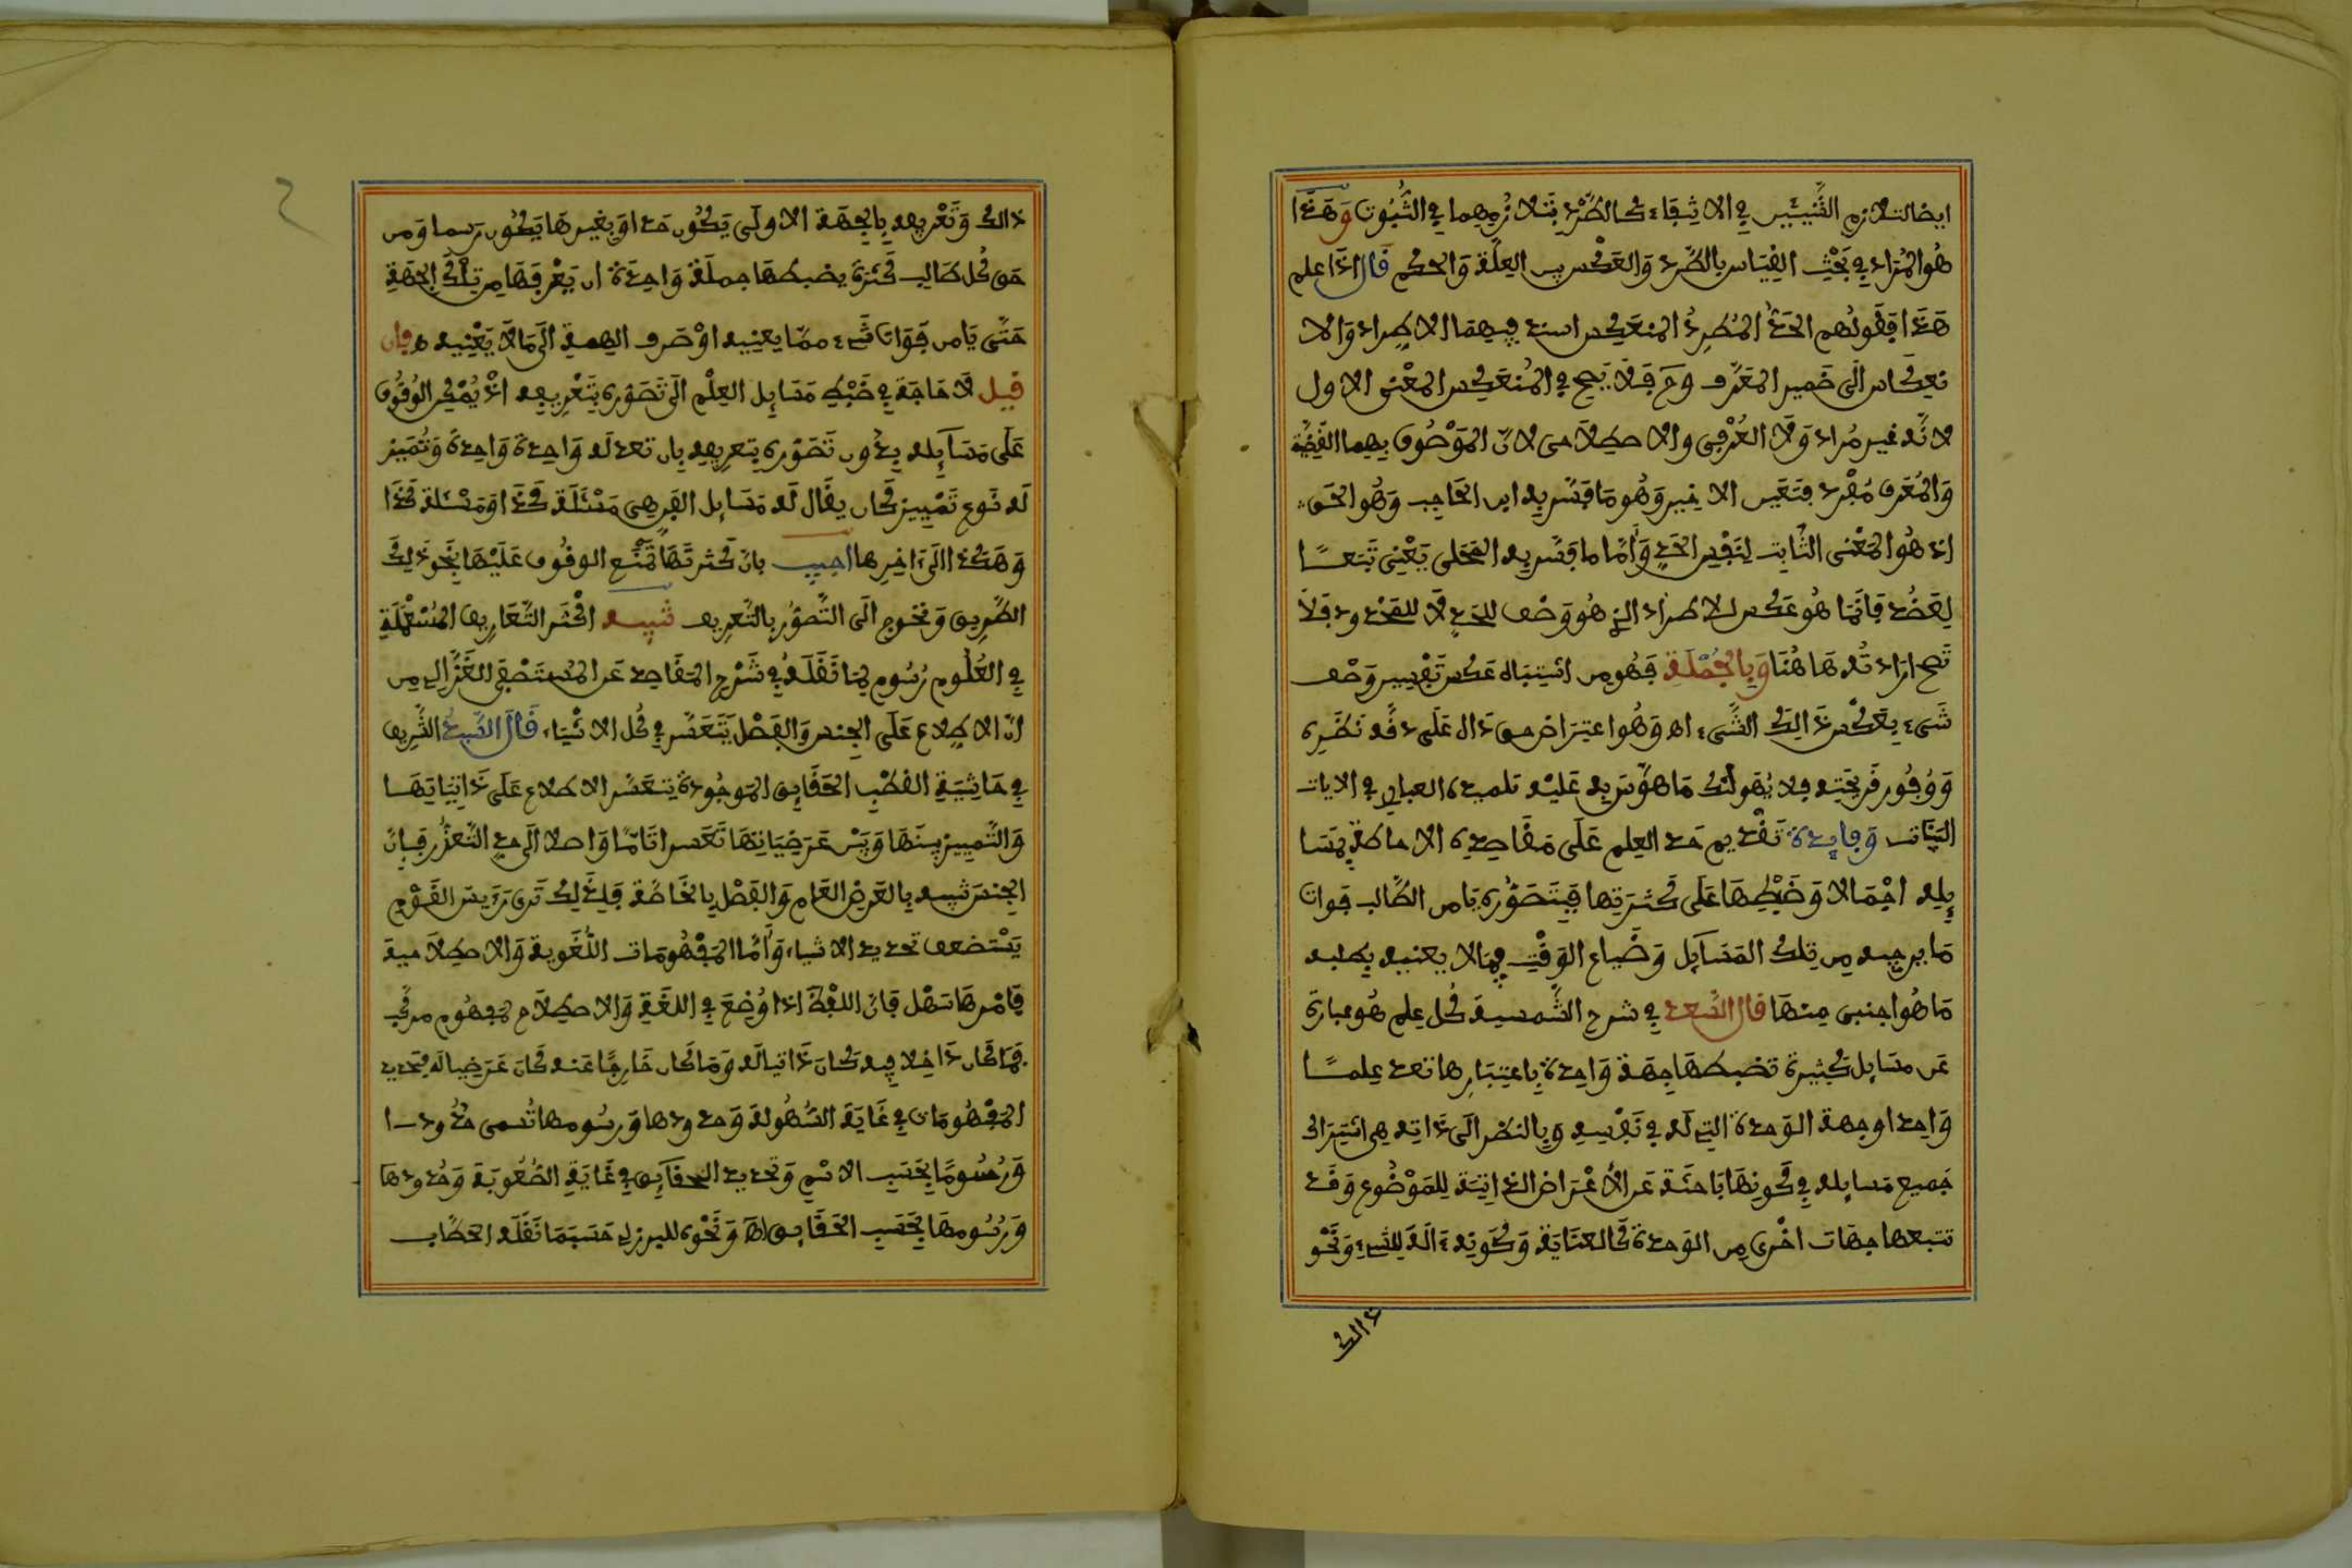 ايضا لتلازم الشيئين في الانتفاء كالطرد بتلازمهما في الثبوت وهذا
هو المراد في بحث القياس بالطرد والعكس بين العلة والحكم قال اذا علم
هذا فقولهم الحد المطرد المنعكس اسند فيهما الاطراد والا
نعكاس الى ضمير المعرف وح فلا يصح في المنعكس المعنى الاول
لانه غير مراد ولا العرفي والاصطلاحي لان الموصوف بهما القضية
والمعرف مفرد فتعين الاخير وهو ما فسر به ابن الحاجب وهو الحق
اذ هو المعنى الثابت لنفس الحد واما ما فسر به المحلى يعني تبعا
لعضد فانما هو عكس للاطراد الذي هو وصف للحد لا للمحدود فلا
تصح ارادته هاهنا وبالجملة فهو من اشتباه عكس تفسير وصف
شيء بعكس ذالك الشيء اه وهو اعتراض حق دال على دقة نظره
ووفور قريحته فلا يهولنك ما هوش به عليه تلميذه العبادي في الايات
البينات وفايدة تقديم حد العلم على مقاصده الاحاطة بمسا
يله اجمالا وضبطها على كثرتها فبتصوره يامن الطالب فوات
ما يرجيه من تلك المسايل وضياع الوقت فيما لا يعنيه بطلبه
ما هو اجنبي منها قال السعد في شرح الشمسية كل علم هو عبارة
عن مسايل كثيرة تضبطها جهة واحدة باعتبارها تعد علما
واحدا وجهة الوحدة التي له في نفسه وبالنظر الى ذاته هي اشتراك
جميع مسايله في كونها باحثة عن الاعراض الذاتية للموضوع وقد
تتبعها جهات اخرى من الوحدة كالغناية وكونه ءالة للشيء ونحو
ذالك
ذالك وتعريفه بالجهة الاولى يكون حدا وبغيرها يكون رسما ومن
حق كل طالب كثرة يضبطها جملة واحدة ان يعرفها من تلك الجهة
حتى يامن فوات شيء مما يعنيه او صرف الهمة الى ما لا يعنيه ه فان
قيل لا حاجة في ضبط مسايل العلم الى تصوره بتعريفه اذ يمكن الوقوف
على مسايله بدون تصوره بتعريفه بان تعد له واحدة واحدة وتميز
له نوع تمييز كان يقال له مسايل الفن هي مسئلة كذا ومسئلة كذا
وهكذا الى ءاخرها اجيب بان كثرتها تمنع الوقوف عليها بنحو ذلك
الطريق وتحوج الى التصور بالتعريف تنبيه اكثر التعاريف المستعملة
في العلوم رسوم لما نقله في شرح المقاصد عن المستصفى للغزالي من
ان الاطلاع على الجنس والفصل يتعسر في كل الاشياء قال السيد الشريف
في حاشية القطب الحقايق الموجودة يتعسر الاطلاع على ذاتياتها
والتمييز بينها وبين عرضياتها تعسرا تاما واصلا الى حد التعذر فان
الجنس شبيه بالعرض العام والفصل بالخاصة فلذلك ترى رءيس القوم
يستضعف تحديد الاشياء واما المفهومات اللغوية والاصطلاحية
فامرها سهل فان اللفظ اذا وضع في اللغة والاصطلاح لمفهوم مركب
فما كان داخلا فيه كان ذاتيا له وما كان خارجا عنه كان عرضيا له فتحديد
المفهومات في غاية السهولة وحدودها ورسومها تسمى حدودا
ورسوما بحسب الاسم وتحديد الحقايق في غاية الصعوبة وحدودها
ورسومها بحسب الحقايق اه ونحوه للبرزلي حسبما نقله الحطاب